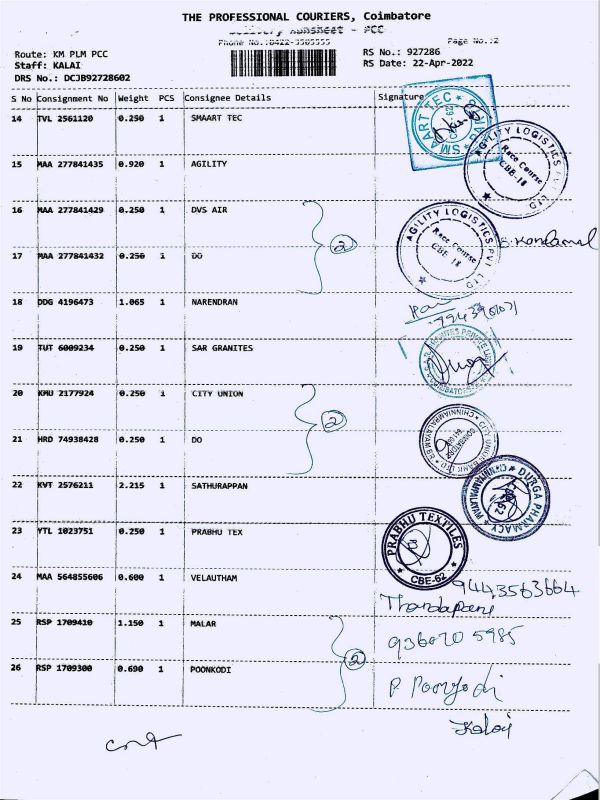 THE PROFESSIONAL COURIERS, Coimbatore
Delivery Runsheet - PCC
Phone No.:0422-3505555 Page No.:2
Route: KM PLM PCC RS No.: 927286
Staff: KALAI RS Date: 22-Apr-2022
DRS No.: DCJB92728602
S No Consignment No Weight PCS Consignee Details Signature
14 TVL 2561120 0.250 1 SMAART TEC
SMAART TEC
15 MAA 277841435 0.920 1 AGILITY
AGILITY LOGISTICS PVT LTD
Race Course
CBE-18
16 MAA 277841429 0.250 1 DVS AIR
2
AGILITY LOGISTICS PVT LTD
Race Course
CBE-18
17 MAA 277841432 0.250 1 DO
18 DDG 4196473 1.065 1 NARENDRAN
19 TUT 6009234 0.250 1 SAR GRANITES
20 KMU 2177924 0.250 1 CITY UNION
2
CITY UNION BANK LTD CHINNIAMPALAYAM
21 HRD 74938428 0.250 1 DO
22 KVT 2576211 2.215 1 SATHURAPPAN
DURGA PHARMACY
23 YTL 1023751 0.250 1 PRABHU TEX
PRABHU TEXTILES
CBE-62
24 MAA 564855606 0.600 1 VELAUTHAM
9443563664
Thandapani
25 RSP 1709410 1.150 1 MALAR
936070 5985
2
26 RSP 1709300 0.690 1 POONKODI
P Poonkodi
Kalai
cont